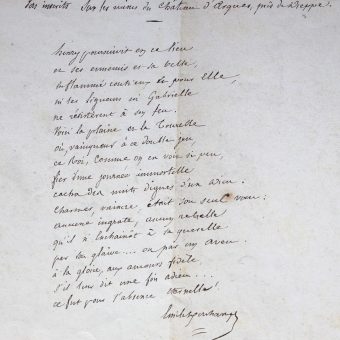 Vos inscrits Sur les ruines du Château d'Arques, près de Dieppe.
henry poursuivit en ce lieu
et ses ennemis et sa belle,
enflammé contr'eux et pour elle,
ni les ligueurs ni Gabrielle
ne résistèrent à son feu.
Voici la plaine et la Tourelle
où, vainqueur à ce double jeu
ce Roi, comme on en voit si peu,
d'une journée immortelle
cacha des nuits dignes d'un dieu.
Charmer, vaincre, était son seul vœu:
aucune ingrate, aucun rebelle
qu'il n'enchaînât à sa querelle
par son glaive.... ou par un aveu.
à la gloire, aux amours fidèle,
S'il leur dit une fois adieu....
ce fut pour l'absence éternelle!
Emile Deschamps